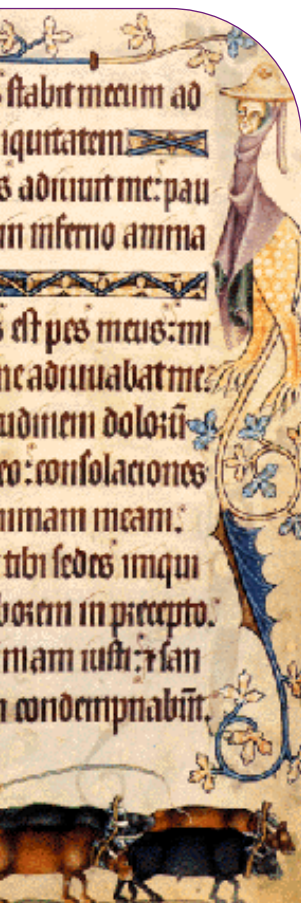 s stabit mecum ad
iquitatem
s adiuuit me: pau
in inferno anima
s est pes meus: mi
ne adiuuabat me:
udinem dolorū
eo: consolaciones
nimam meam:
tibi sedes iniqui
borem in precepto.
imam iusti: ⁊ san
n condempnabūt.